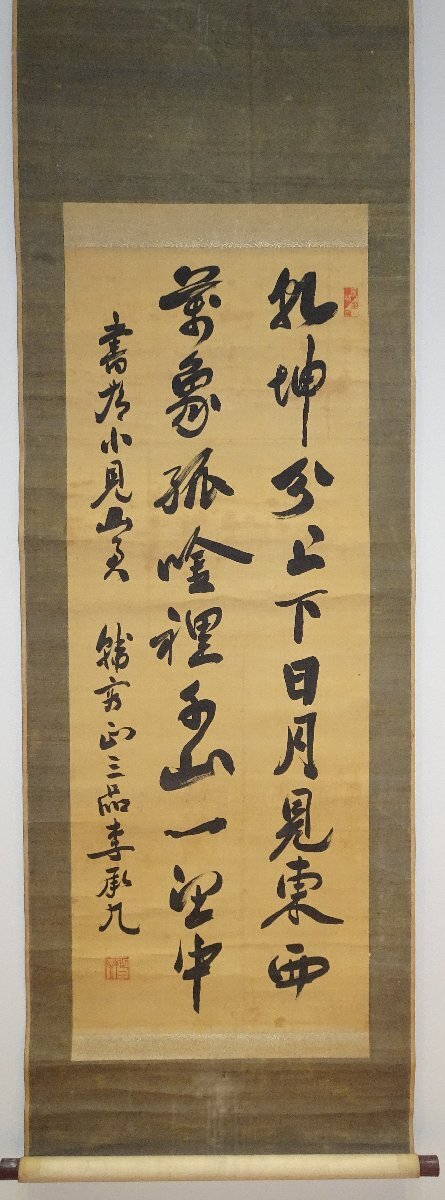 乾坤分上下日月見東西
萬象孤唫裡千山一望中
書為小見山 正三品李承九